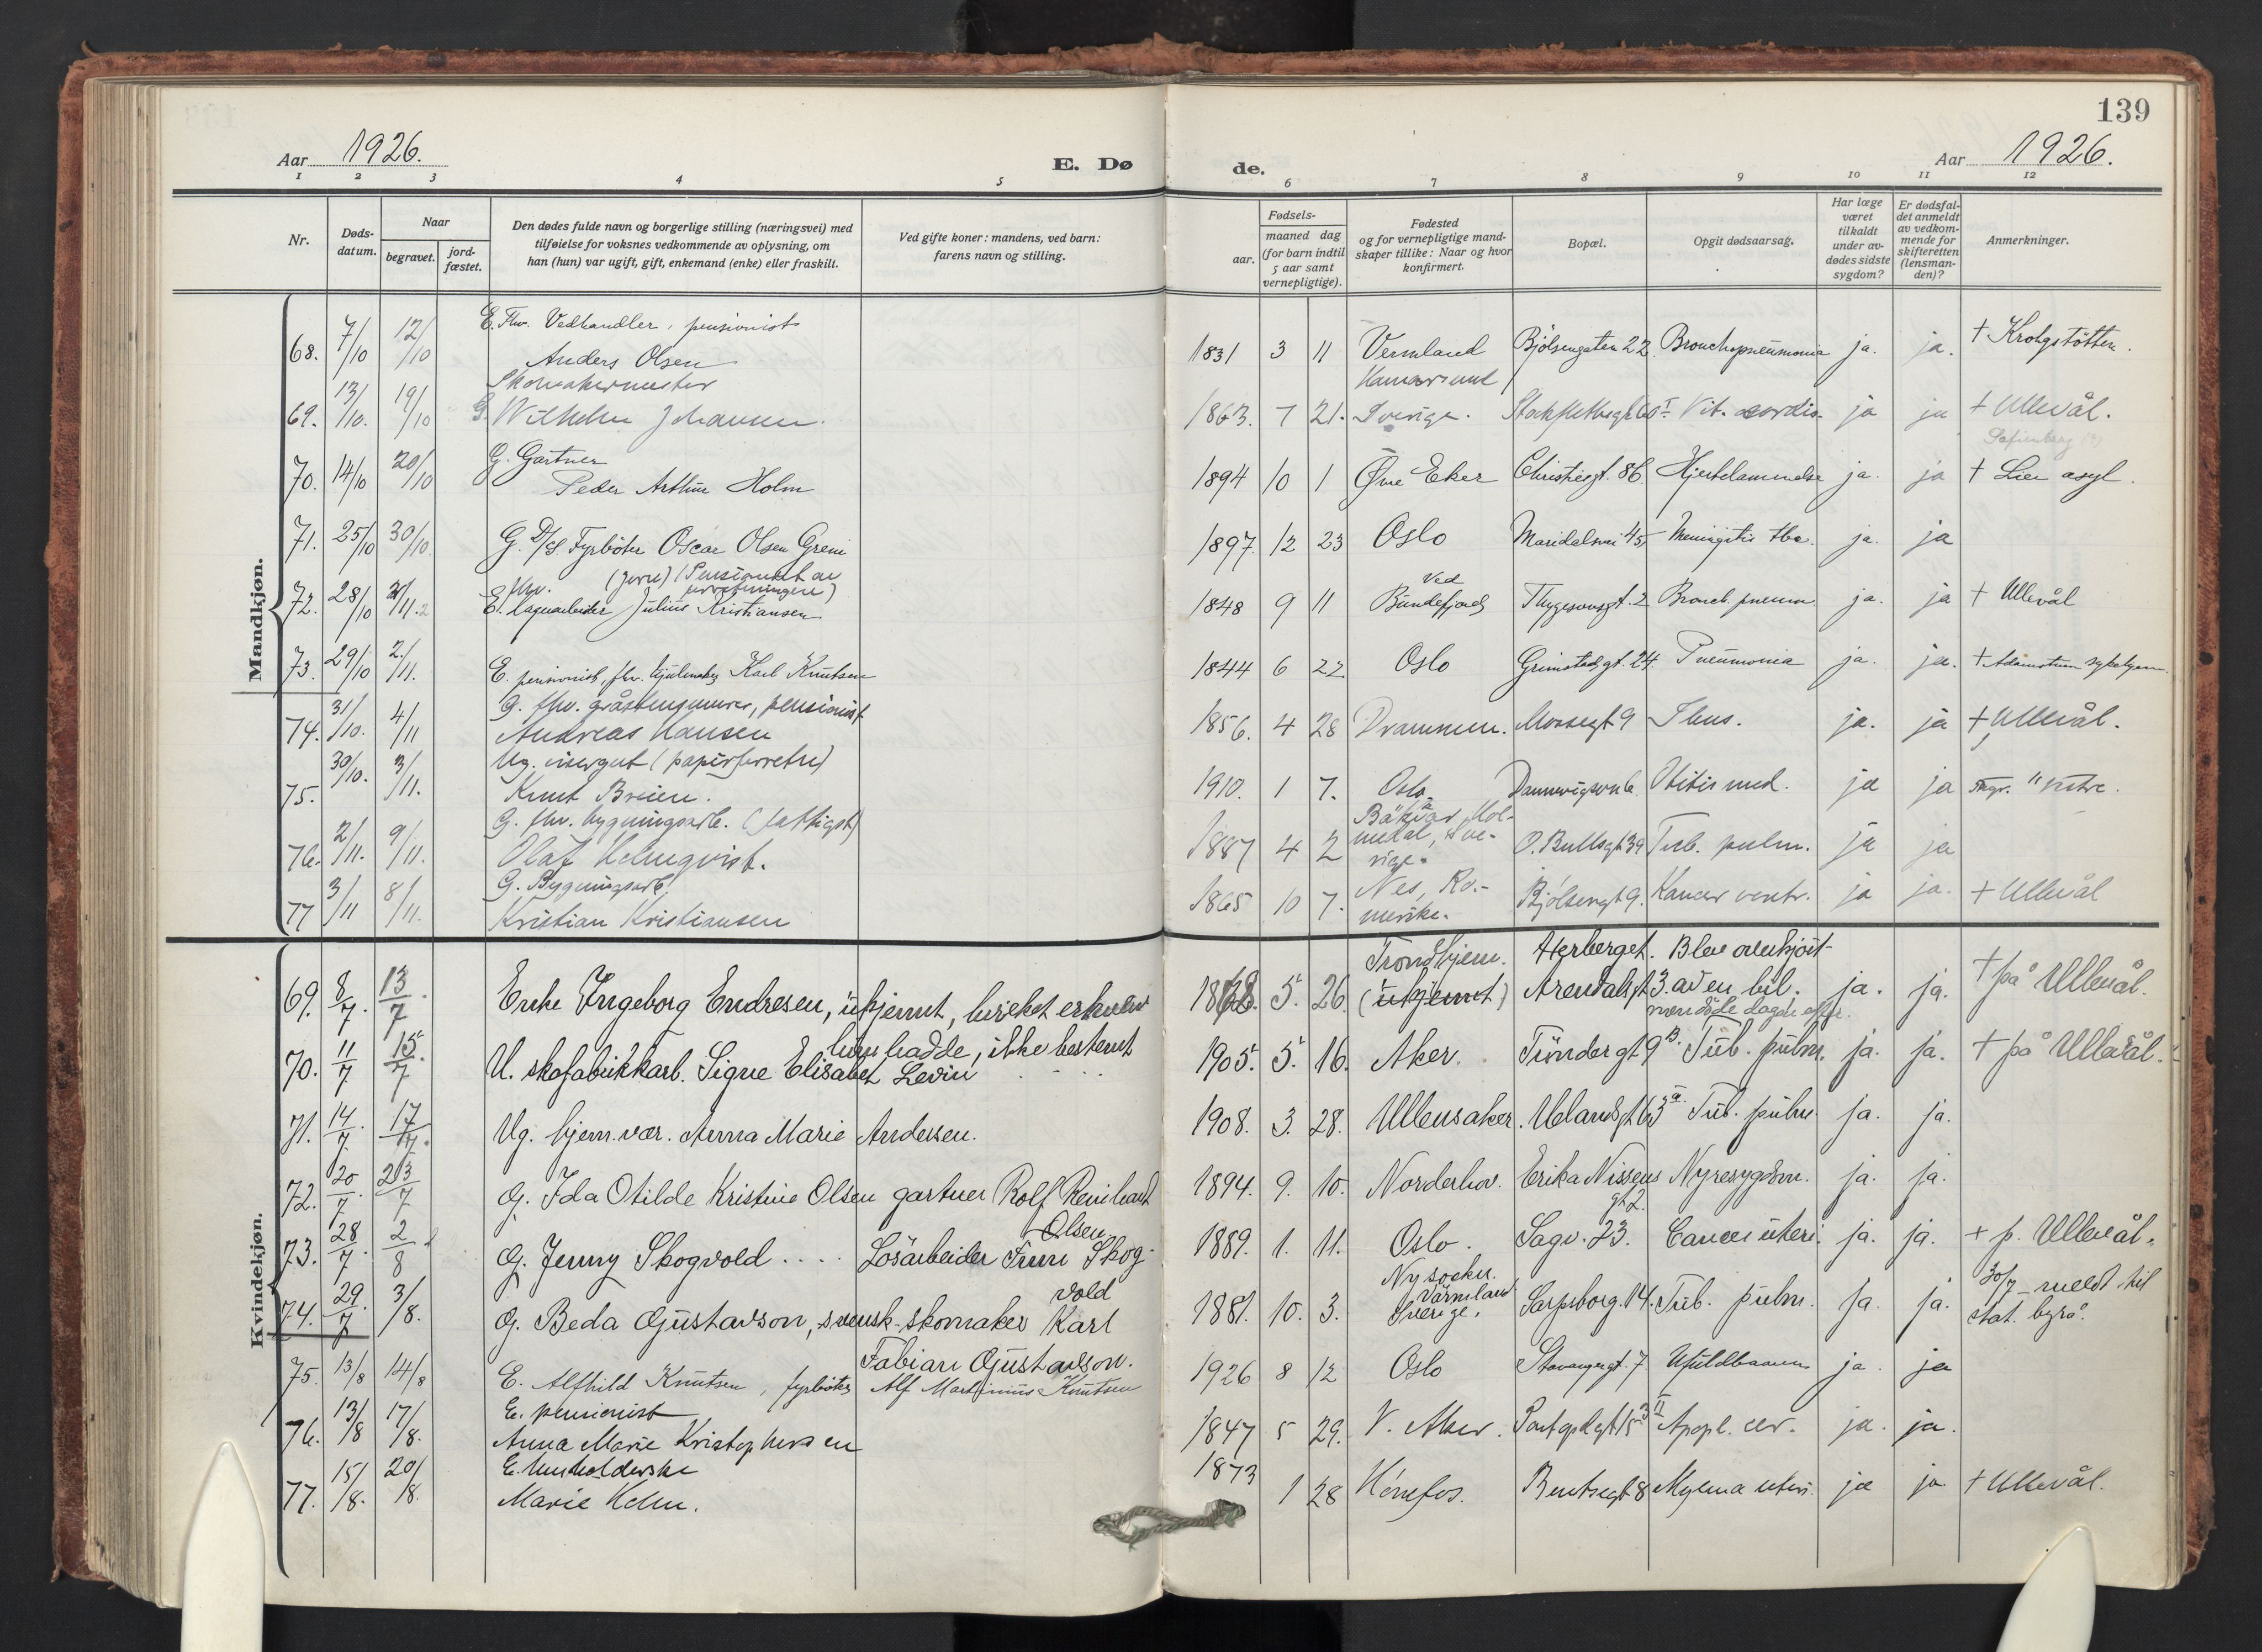 139
Aar 1926.
E. Døde.
Aar 1926.
1 2 3 4 5 6 7 8 9 10 11 12
Nr.
Døds-
datum.
Naar
begravet.
jord-
fæstet.
Den dødes fulde navn og borgerlige stilling (næringsvei) med
tilføielse for voksnes vedkommende av oplysning, om
han (hun) var ugift, gift, enkemand (enke) eller fraskilt.
Ved gifte koner: mandens, ved barn:
farens navn og stilling.
Fødsels-
aar.
maaned dag
(for barn indtil
5 aar samt
vernepligtige).
Fødested
og for vernepligtige mand-
skaper tillike: Naar og hvor
konfirmert.
Bopæl.
Opgit dødsaarsag.
Har læge
været
tilkaldt
under av-
dødes sidste
sygdom?
Er dødsfal-
det anmeldt
av vedkom-
mende for
skifteretten
(lensman-
den)?
Anmerkninger.
Mandkjøn.
E. Fhv. Vedhandler, pensionist
68. 7/10 12/10 Anders Olsen 1831 3 11 Vermland Bjölsengaten 22. Bronchopneumonia ja. ja. † Krohgstötten.
Skomakermester
69. 13/10. 19/10 G. Wilhelm Johansen. 1863. 7 21. Sverige. Vit. cordis. ja ja + Ullevål.
G. Gartner
70. 14/10 20/10 Peder Arthur Holm 1894 10 1 Øvre Eker Christiesgt. 86. Hjertelammelse ja. ja † Lier asyl.
71. 25/10 30/10 G. D/S Fyrböter Oscar Olsen Greni 1897. 12 23 Oslo Maridalsvei 45 Meningitis tbc. ja. ja
fhv. (Jern) (Pensionert av
72. 28/10 E. Julius Kristiansen 1848 9 11 Ved Bundefjord Thygesonsgt. 2 Bronch. pneum. ja. ja + Ullevål
73. 29/10 2/11. E. pensionist, fhv. Karl Knutsen 1844 6 22 Oslo Grimstadgt. 24. Pneumonia ja. ja.
G. fhv. gråstensmurer, pensionist
74. 31/10. 4/11 Andreas Hansen 1856. 4 28 Drammen. Mossegt 9 ja. ja + Ullevål.
Ug. visergut (papirforretn)
75. 30/10. 3/11. Knut Breien. 1910. 1 7. Oslo. Otitis med. ja ja
G. fhv. bygningsarb. (fattigst)
76. 2/11. 9/11. Olaf Holmqvist. 1887 4 2 O. Bullsgt 39 Tub. pulm. ja ja
G. Bygningsarb.
77 3/11 8/11. Kristian Kristiansen 1865 10 7. Nes, Ro-
merike. Bjölsengt 9. Kancer ventr. ja ja. + Ullevål
Kvindekjøn.
69. 8/7. 13/7. Enke Ingeborg Endresen, ukjennt, hvilket erhverv
hun hadde, ikke bestemt 5. 26 Trondhjem.
(ukjennt) Herberget.
Arendalsgt 3. Blev overkjört
av en bil. ja. ja. + på Ullevål.
70. 11/7 15/7. U. skofabrikkarb. Signe Elisabet Levin 1905. 5. 16. Aker. Tröndergt 9 B. Tub. pulm. ja. ja. + på Ullevål.
71. 14/7. 17/7. Ug. hjem.vær. Anna Marie Andersen. 1908. 3. 28. Ullensaker. Uelandsgt 63 a. Tub. pulm. ja. ja.
72. 20/7. 23/7 G. Ida Otilde Kristine Olsen gartner Rolf Reinhart
Olsen 1894. 9. 10. Norderhov. Erika Nissens
gt 2. Nyresygdom. ja. ja.
73. 28/7. 2/8 G. Jenny Skogvold .... Lösarbeider Finn Skog-
vold 1889. 1. 11. Oslo. Sagv. 23. Cancer uteri. ja. ja. + p. Ullevål.
74. 29/7 3/8. G. Beda Gustavson, svensk skomaker Karl
Fabian Gustavson. 1881. 10. 3. Ny socken.
Värmland
Sverige. Sarpsborg. 14. Tub. pulm. ja. ja. 30/7 meldt til
stat. byrå.
75. 13/8 14/8 E. Alfhild Knutsen, fyrböter Alf Martinius Knutsen 1926 8 12 Oslo Stavangergt. 7 Ufuldbaaren ja. ja
E. pensionist
76. 13/8 17/8. Anna Marie Kristophersen 1847 5 29. V. Aker. Apopl. cer. ja. ja.
E. Husholderske
77. 15/8. 20/8. Marie Holm. 1873 1 28 Hönefos. Bentsegt 8 ja ja + Ullevål.